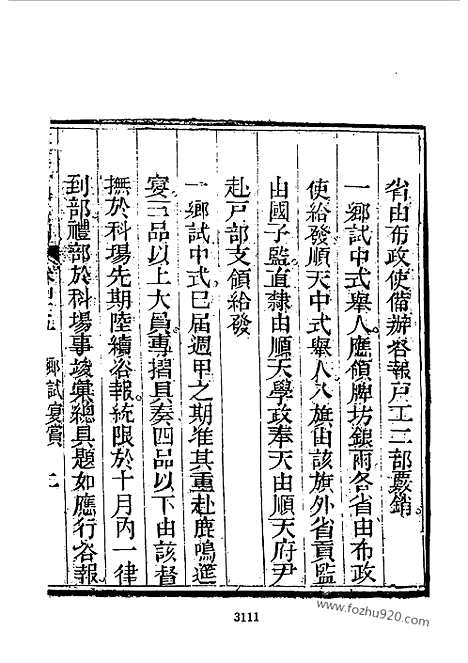 省由布政使備辦咨報戸工二部覈銷
一鄉試中式舉人應領牌坊銀兩各省由布政
使給發順天中式舉人八旗由該旗外省貢監
由國子監直隸由順天學政奉天由順天府尹
赴戸部支領給發
一鄉試中式已届週甲之期准其重赴鹿鳴筵
宴三品以上大員專摺具奏四品以下由該督
撫於科場先期陸續咨報統限於十月內一律
到部禮部於科場事竣彙總具題如應行咨報
鄉試宴賞
3111
www.fozhu920.com